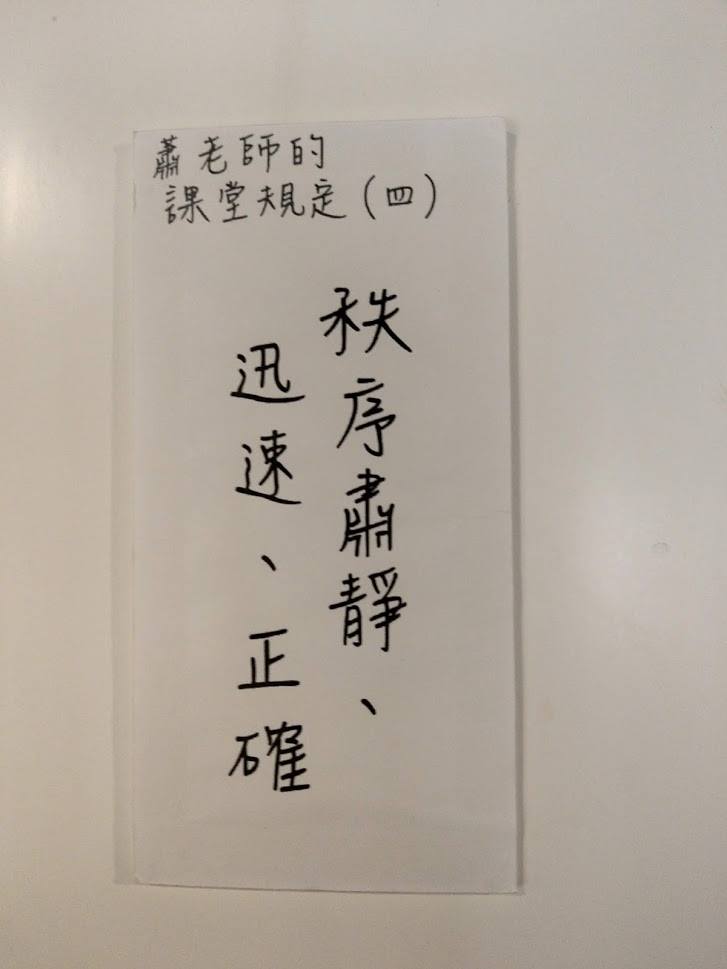 蕭老師的
課堂規定(四)
秩序肅靜、
迅速、正確